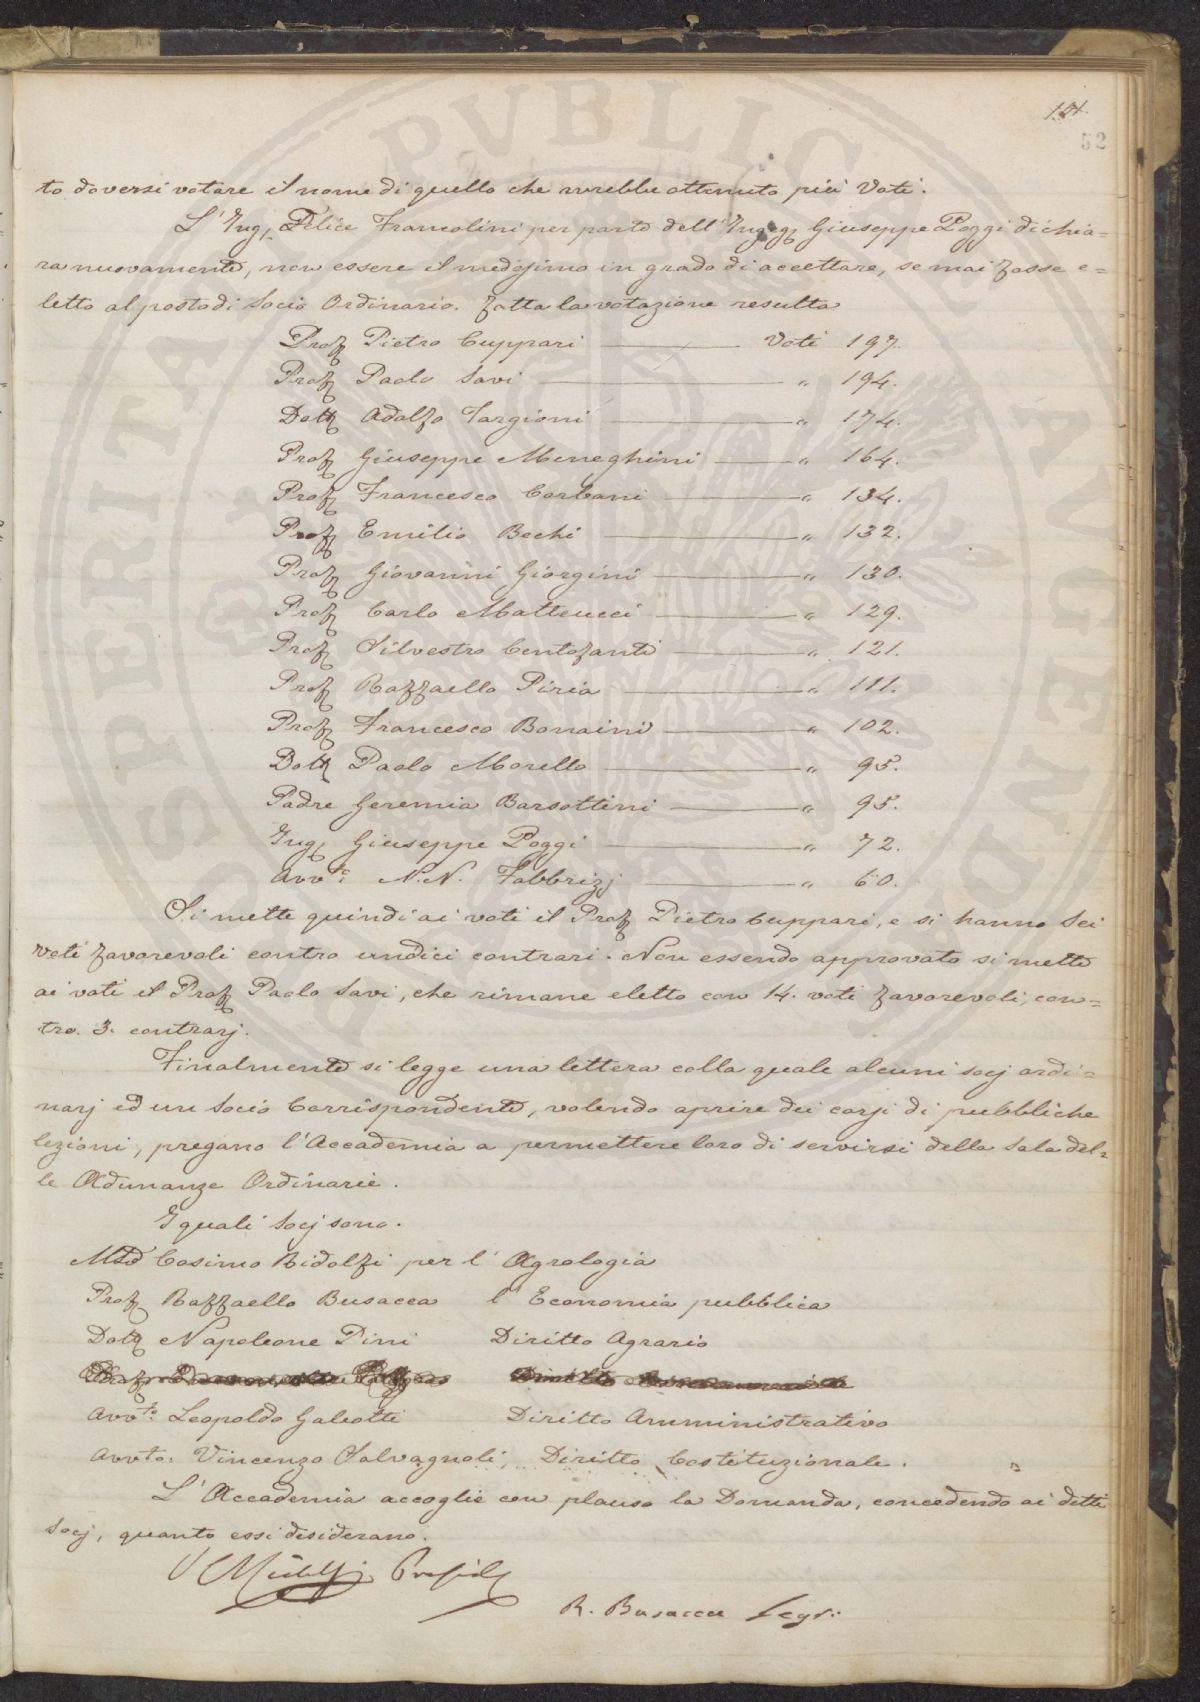 52
to doversi votare il nome di quello che avrebbe ottenuto più Voti.
L'Ing. Felice Francolini per parte dell'Ingeg. Giuseppe Poggi dichia=
ra nuovamente, non essere il medesimo in grado di accettare, se mai fosse e=
letto al posto di Socio Ordinario. Fatta la votazione resulta
Prof. Pietro Cuppari Voti 197.
Prof. Paolo Savi " 194.
Dott. Adolfo Targioni " 174.
Prof. Giuseppe Meneghini " 164.
Prof. Francesco Corbani " 134.
Prof. Emilio Bechi " 132.
Prof. Giovanni Giorgini " 130.
Prof. Carlo Matteucci " 129.
Prof. Silvestro Centofanti " 121.
Prof. Raffaello Piria " 111.
Prof. Francesco Bonaini " 102.
Dott. Paolo Morello " 95.
Padre Geremia Barsottini " 95.
Ing. Giuseppe Poggi " 72.
Avvto: N.N. Fabbrizj " 60.
Si mette quindi ai voti il Prof. Pietro Cuppari, e si hanno Sei
Voti favorevoli contro undici contrari. Non essendo approvato si mette
ai voti il Prof. Paolo Savi, che rimane eletto con 14. voti favorevoli, con=
tro. 3. contrarj.
Finalmente si legge una lettera colla quale alcuni socj ordi=
narj ed un Socio Corrispondente, volendo aprire dei corsi di pubbliche
lezioni, pregano l'Accademia a permettere loro di servirsi della Sala del=
le Adunanze Ordinarie.
I quali Socj sono.
Cosimo Ridolfi per l'Agrologia
Prof. Raffaello Busacca l'Economia pubblica
Dott. Napoleone Pini Diritto Agrario
Avvto: Leopoldo Galeotti Diritto Amministrativo
Avvto: Vincenzo Salvagnoli, Diritto Costituzionale.
L'Accademia accoglie con plauso la Domanda, concedendo ai detti
Socj, quanto essi desiderano.
R. Busacca Segr:
ASPERITATE PVBLICAE AVGENDAE